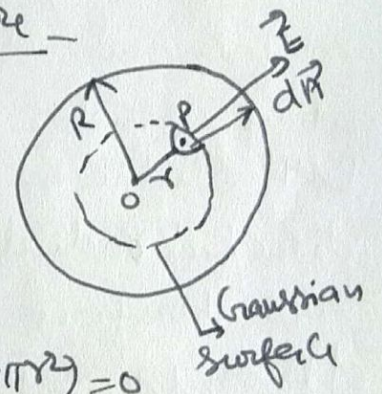 E
dA
R
P
r
O
Gaussian
surface
πr²) = 0